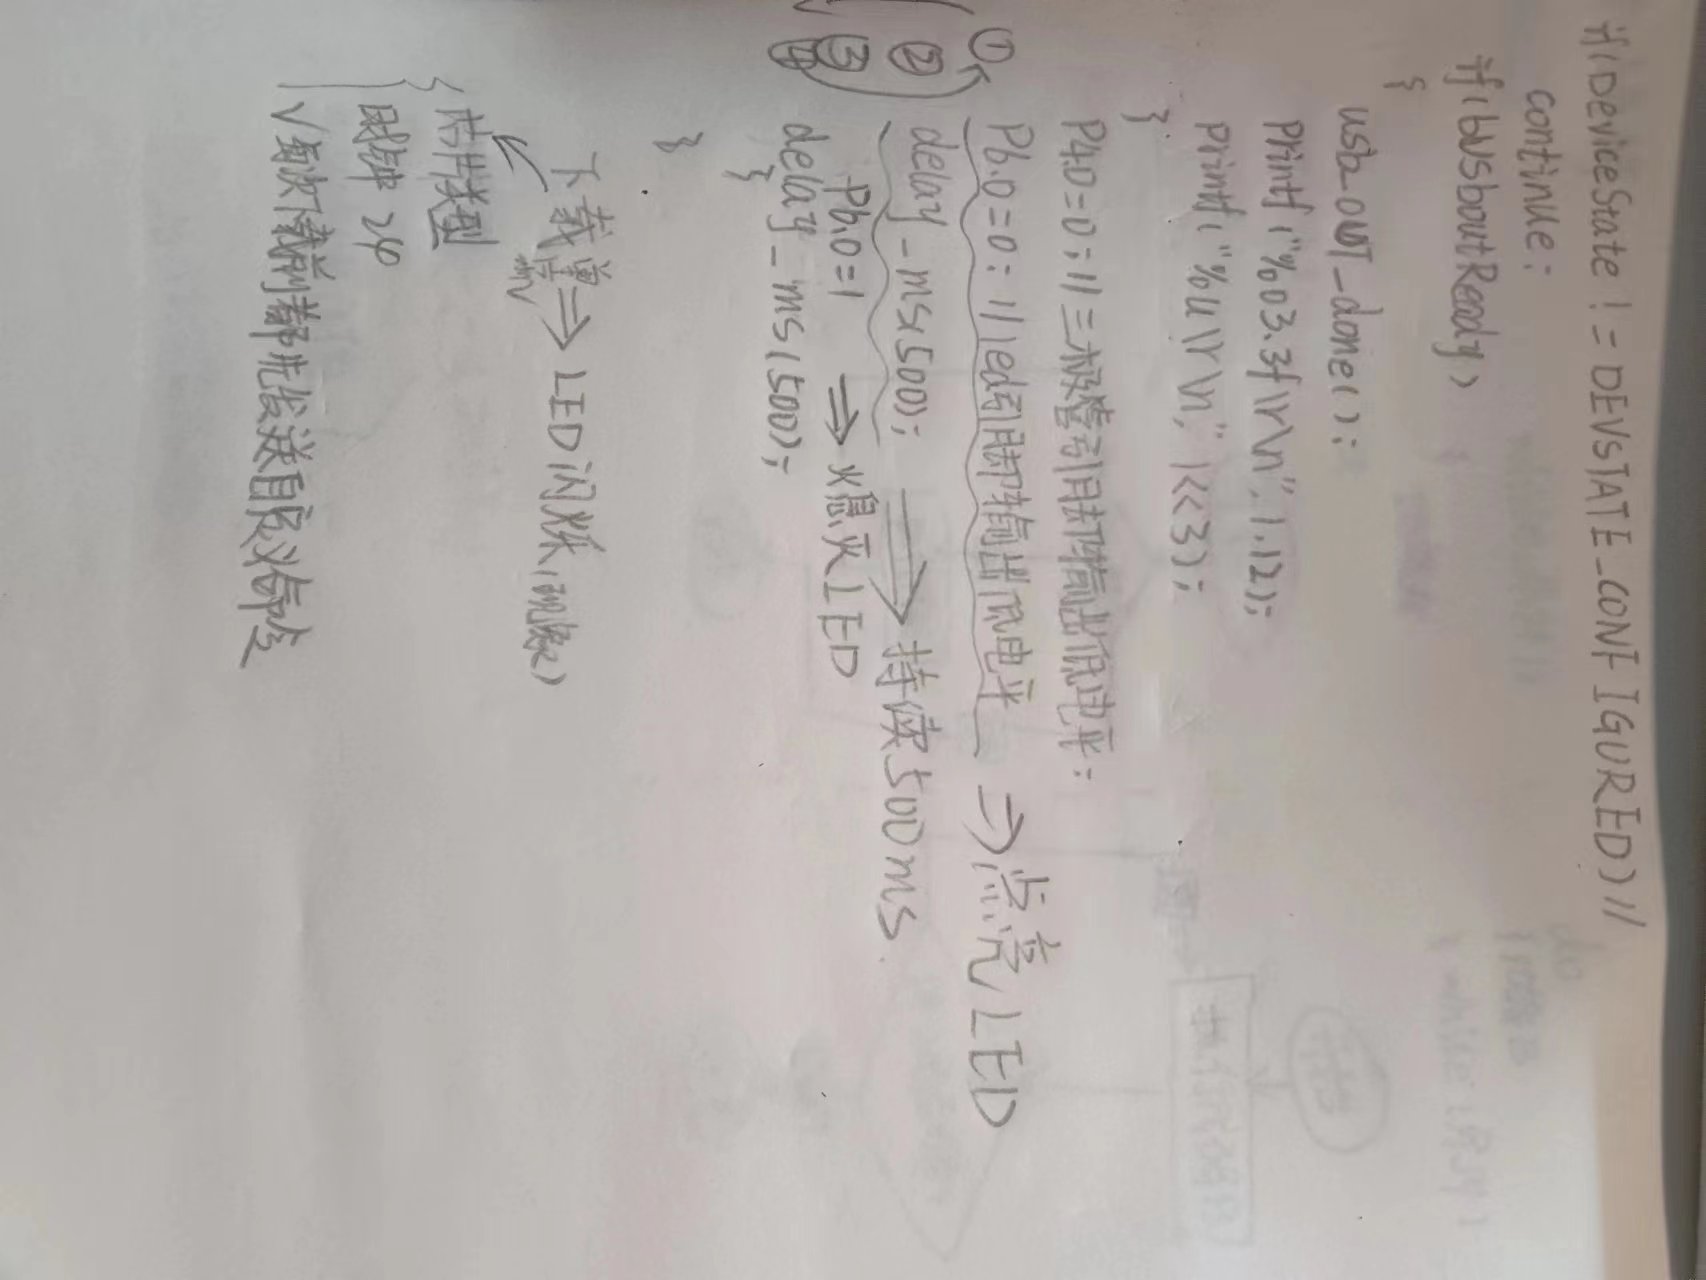 if(DeviceState!=DEVSTATE_CONFIGURED)//
continue;
if(bUsboutReady)
{
usb_OUT_done();
printf("%03.3f\r\n",1.12);
printf("%u\r\n",1<<3);
}
P40=0;//三极管引脚输出低电平;
① P6.0=0;//led引脚输出低电平 ⇒点亮LED
② delay_ms(500); ⇒持续500ms
③ P6.0=1 ⇒熄灭LED
④ delay_ms(500);
}
}
下载 ⇒ LED闪烁(现象)
{芯片类型
时钟 24
√每次下载前都先发送自定义命令